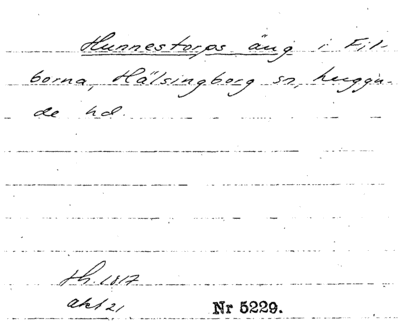 Hunnestorps äng i Fil-
borna, Hälsingborg sn, Luggu-
de hd.
Th. 1817
akt 21
Nr 5229.